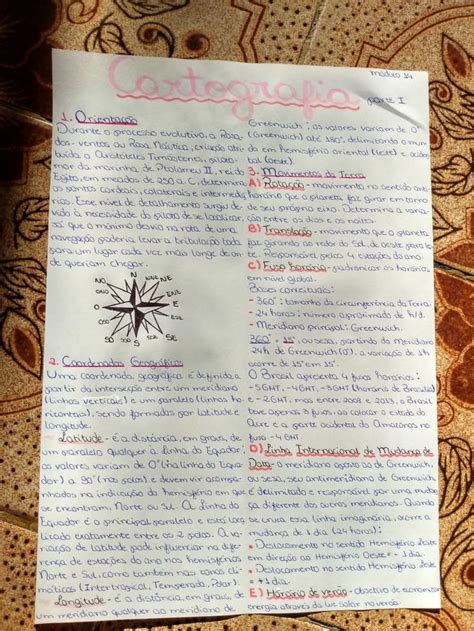 Cartografia
Módulo 14
parte I
1. Orientação
Durante o processo evolutivo, a Rosa-
dos-ventos ou Rosa Náutica, criação atri-
buída a Aristoteles Timostenes, pilota-
mor da marinha de Ptolomeu II, rei do
Egito, em meados de 250 a.C, determinou
os pontos cardeais, colaterais e intermediá-
rios. Esse nível de detalhamento surgiu de-
vido à necessidade do piloto de se localizar,
já que o mínimo desvio na rota de uma
navegação poderia levar a tribulação toda
para um lugar cada vez mais longe de on-
de queriam chegar.
N
NNE
NE
ENE
E
ESE
SE
S
SO
O
NO
2. Coordenadas Geográficas
Uma coordenada geográfica é definida a
partir da interseção entre um meridiano
(linhas verticais) e um paralelo (linhas ho-
rizontais), sendo formadas por latitude e
longitude.
Latitude - é a distância, em graus, de
um paralelo qualquer à linha do Equador;
os valores variam de 0° (na linha do Equa-
dor) a 90° (nos polos) e devem vir acompa-
nhados na indicação do hemisfério em que
se encontram, Norte ou Sul. A linha do
Equador é o principal paralelo e está loca-
lizado exatamente entre os 2 polos. A va-
riação de latitude pode influenciar na dife-
rença de estações do ano nos hemisférios
Norte e Sul, como também nas zonas cli-
máticas (Intertropical, Temperada, Polar).
Longitude - é a distância, em graus, de
um meridiano qualquer ao meridiano de
Greenwich, os valores variam de 0°
(Greenwich) até 180°, delimitando o mun-
do em hemisfério oriental (leste) e ociden-
tal (oeste).
3. Movimentos da Terra
A) Rotação - movimento no sentido anti-
horário que o planeta faz girar em torno
de seu próprio eixo. Determina a varia-
ção entre os dias e as noites.
B) Translação - movimento que o planeta
faz girando ao redor do Sol, de oeste para les-
te. Responsável pelas 4 estações do ano.
C) Fuso horário - padronizar os horários
em nível global.
Bases conceituais:
- 360°: tamanho da circunferência da Terra.
- 24 horas: número aproximado de h/d.
- Meridiano principal: Greenwich.
360° = 15°, ou seja, partindo do Meridiano
24h de Greenwich (0°), a variação de 1h
ocorre de 15° em 15°.
O Brasil apresenta 4 fusos horários:
-5GHT, -4GHT, -3GHT (horário de Brasília)
e -2GHT, mas entre 2008 e 2013, o Brasil
teve apenas 3 fusos, ao colocar o estado do
Acre e a parte ocidental do Amazonas no
fuso -4GHT.
D) Linha Internacional de Mudança de
Data - o meridiano oposto ao de Greenwich,
ou seja, seu antimeridiano de Greenwich
é delimitado e responsável por uma mudan-
ça diferente dos outros meridianos. Quando
se cruza essa linha imaginária, ocorre a
mudança de 1 dia (24 horas):
• Deslocamento no sentido Hemisfério Leste
em direção ao Hemisfério Oeste = -1 dia.
• Deslocamento no sentido Hemisfério Oeste
= +1 dia.
E) Horário de verão - objetivo de economizar
energia através da luz solar no verão.